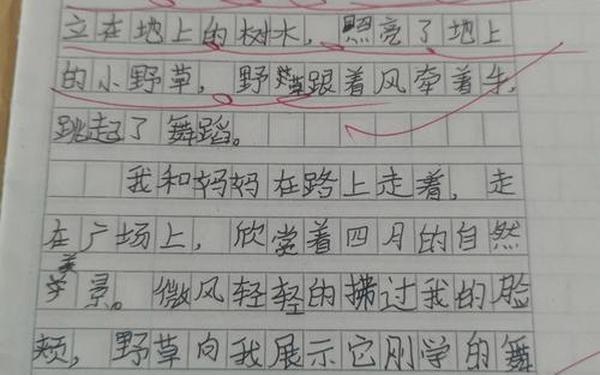 立在地上的树木，照亮了地上
的小野草，野草跟着风牵着手，
跳起了舞蹈。
我和妈妈在路上走着，走
在广场上，欣赏着四月的自然
美景。微风轻轻的拂过我的脸
颊，野草向我展示它刚学的舞